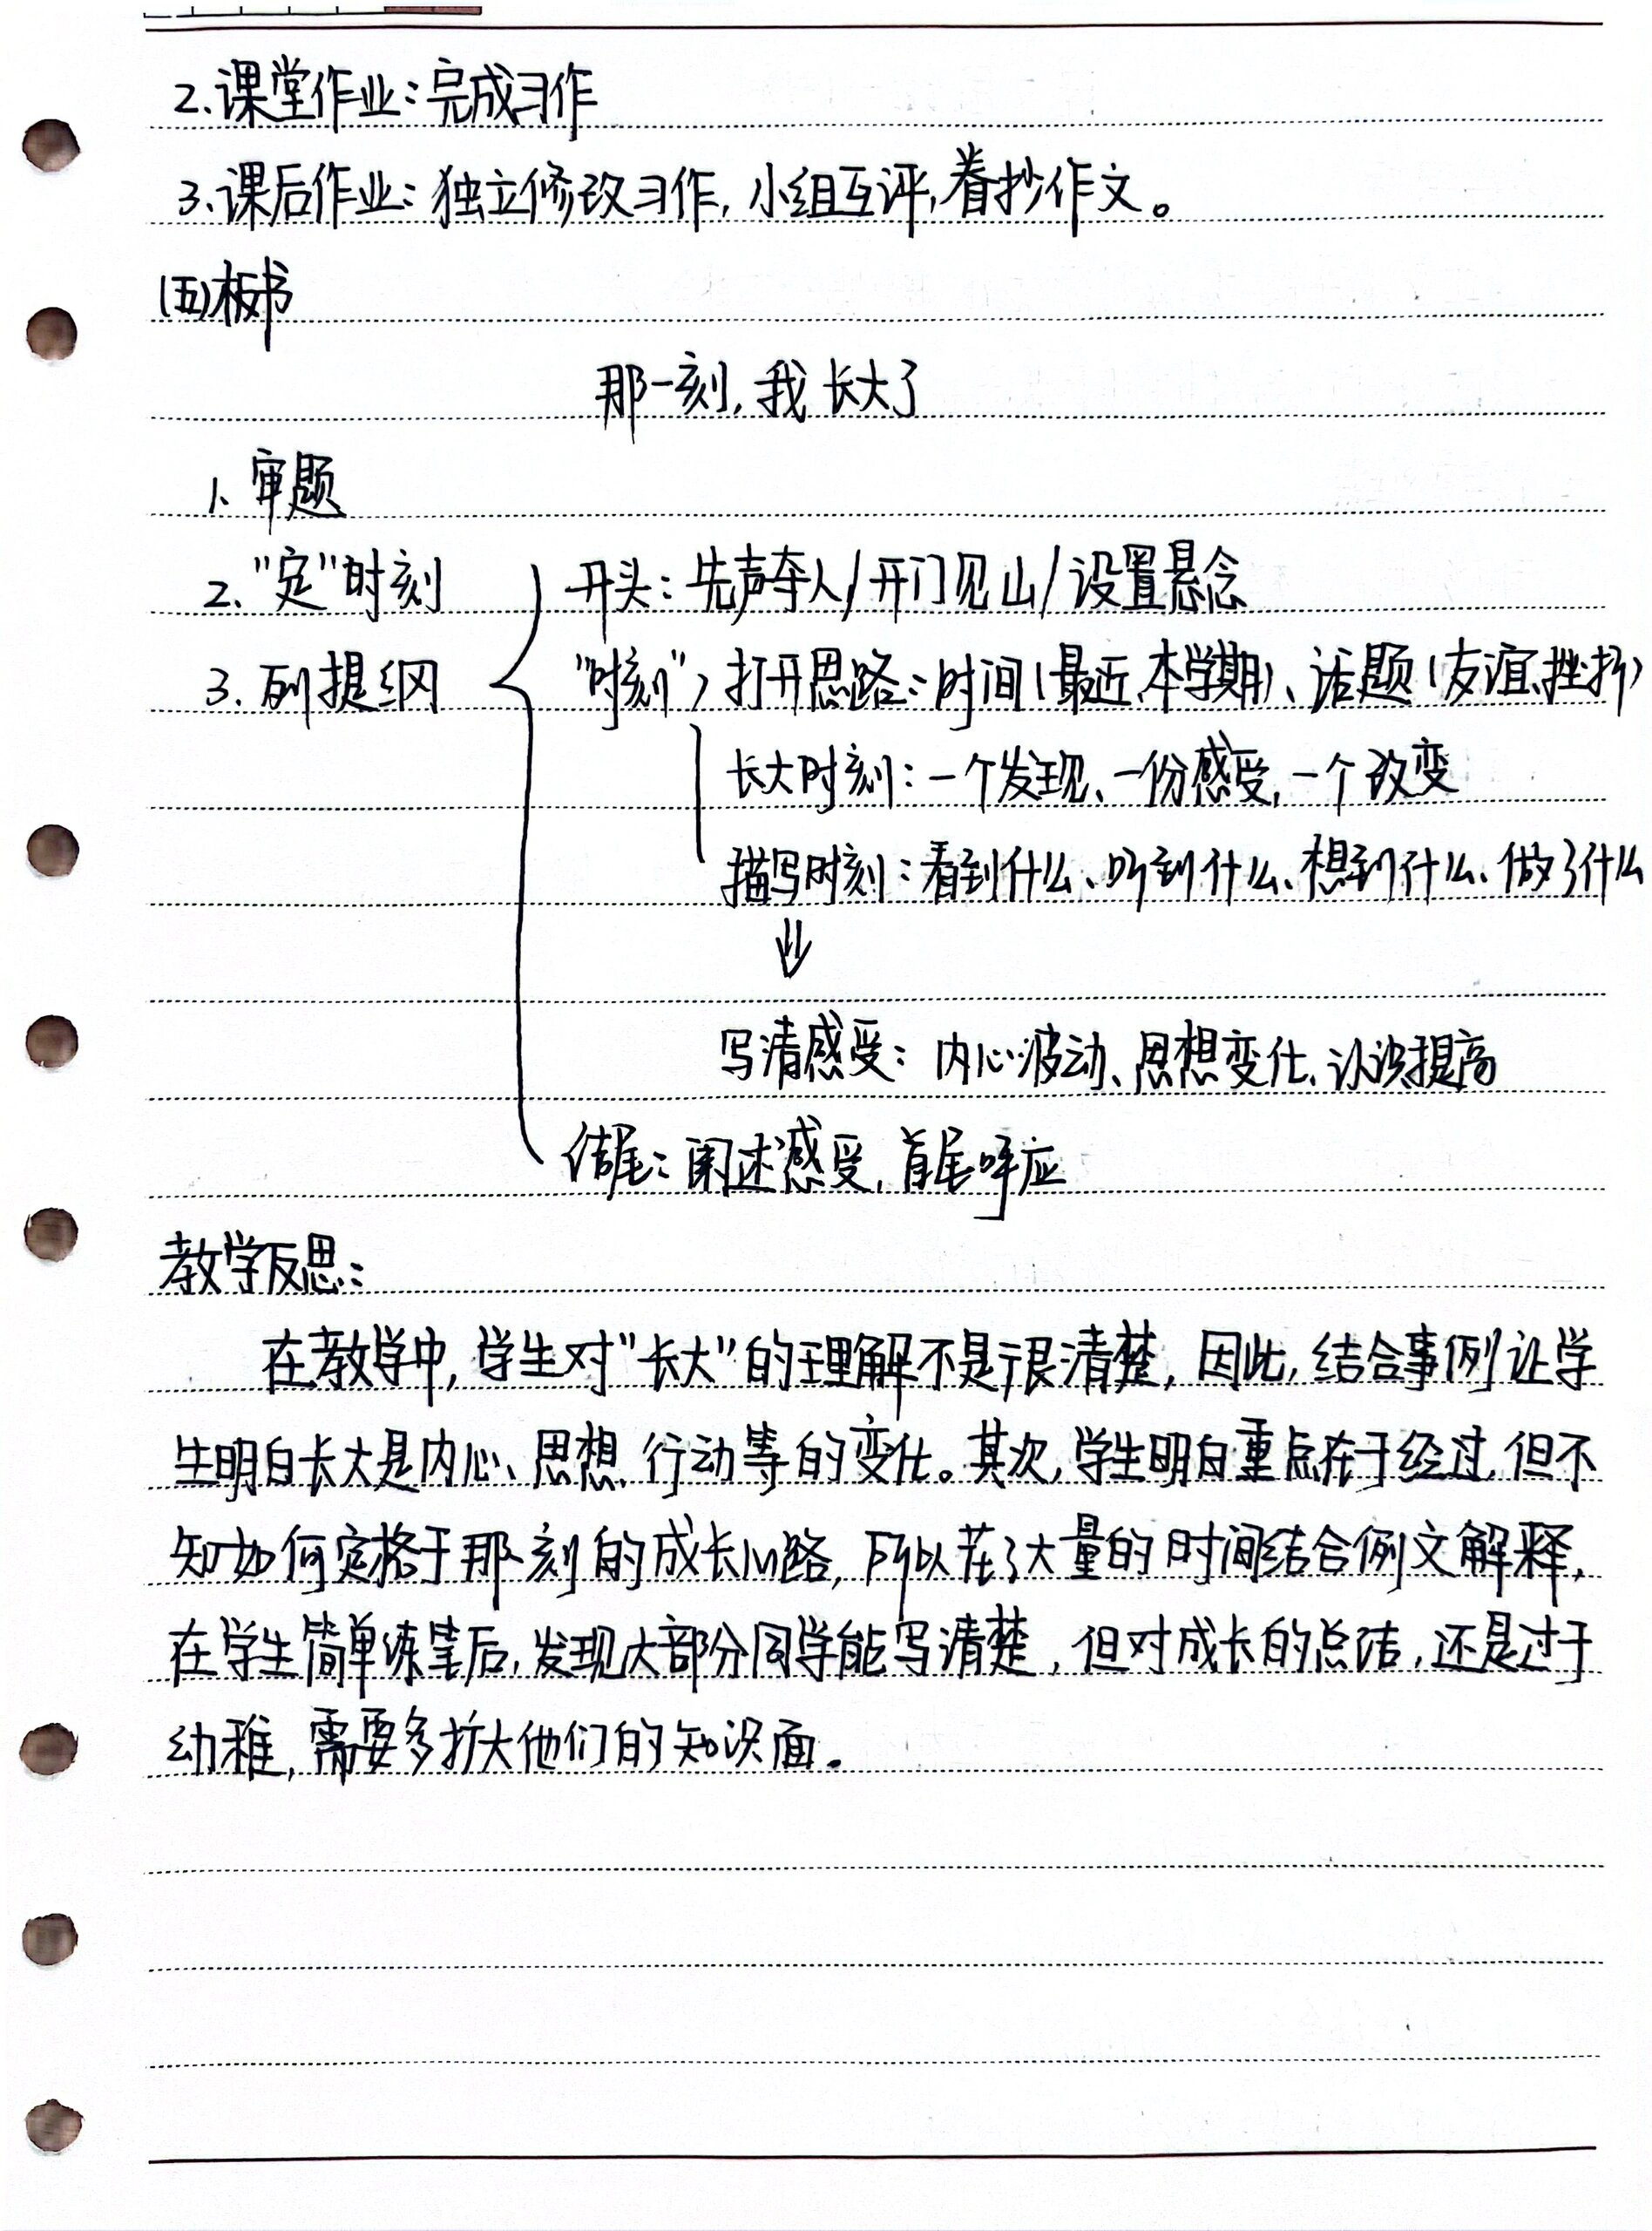 2.课堂作业:完成习作
3.课后作业:独立修改习作,小组互评,誊抄作文。
(五)板书
那一刻,我长大了
1、审题
2."定"时刻
开头:先声夺人/开门见山/设置悬念
3.列提纲
"时刻"〉打开思路:时间(最近、本学期)、话题(友谊、挫折)
长大时刻:一个发现、一份感受,一个改变
描写时刻:看到什么、听到什么、想到什么、做了什么
⇓
写清感受:内心波动、思想变化、认识提高
结尾:阐述感受,首尾呼应
教学反思:
在教学中,学生对"长大"的理解不是很清楚,因此,结合事例让学
生明白长大是内心、思想、行动等的变化。其次,学生明白重点在于经过,但不
知如何定格于那一刻的成长心路,所以花了大量的时间结合例文解释,
在学生简单练笔后,发现大部分同学能写清楚,但对成长的总结,还是过于
幼稚,需要多扩大他们的知识面。